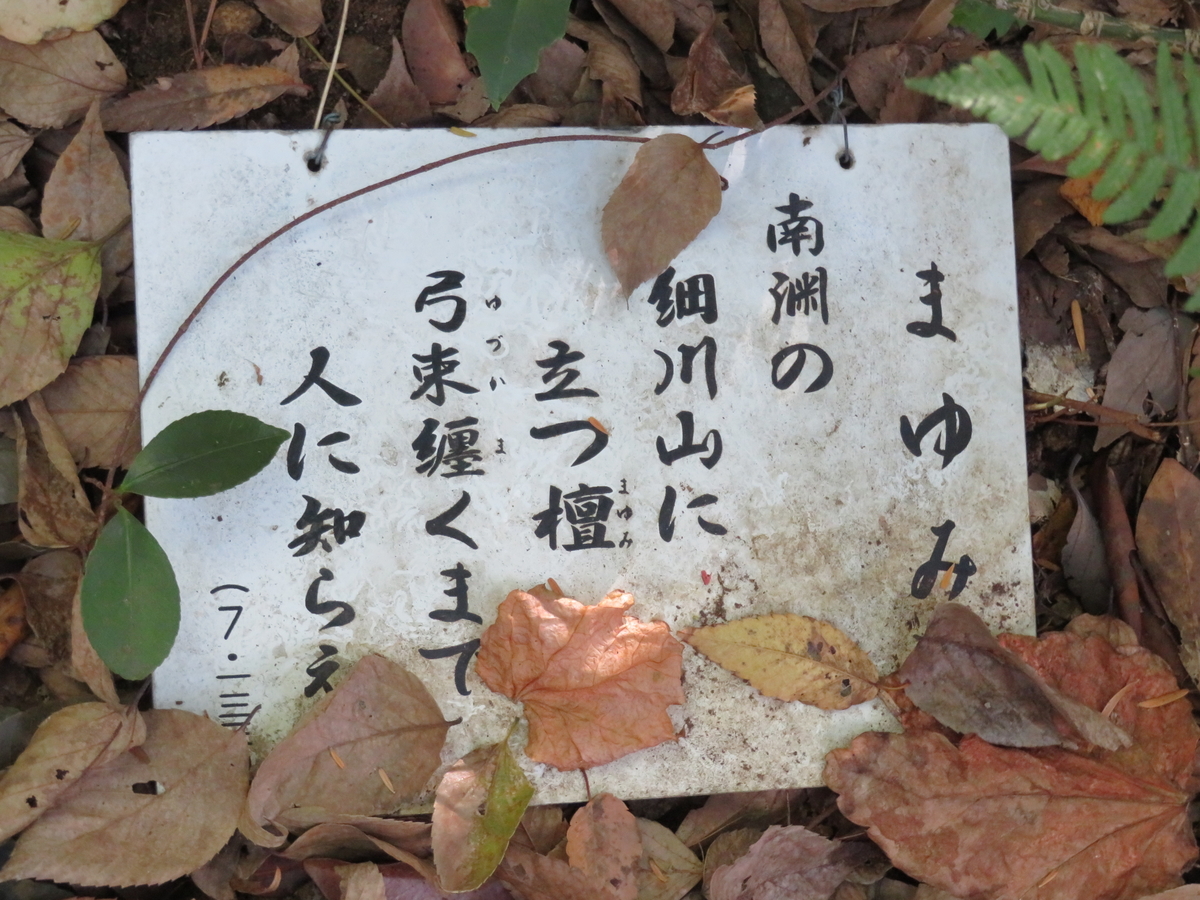 まゆみ
南渊の
細川山に
立つ檀
まゆみ
弓束纏くまで
ゆづか ま
人に知らえ
(7・一三三